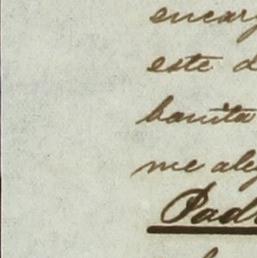 encarg
este d
bonita
me aleg
Padr